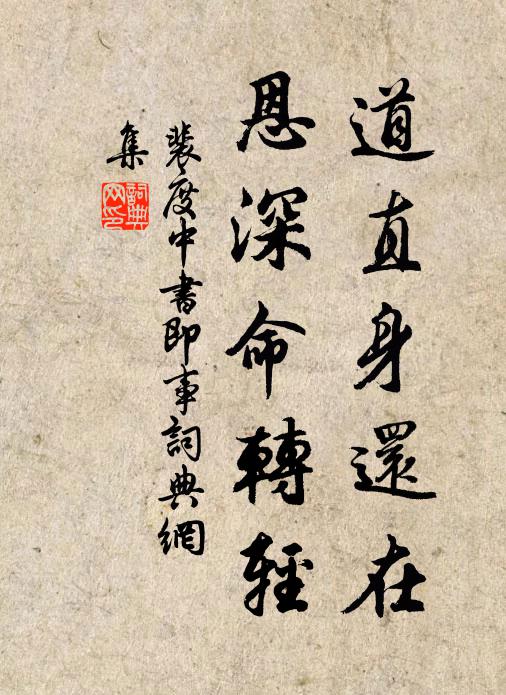 道直身還在
恩深命轉輕
裴度中書即事詞典網
集
詞典
网印